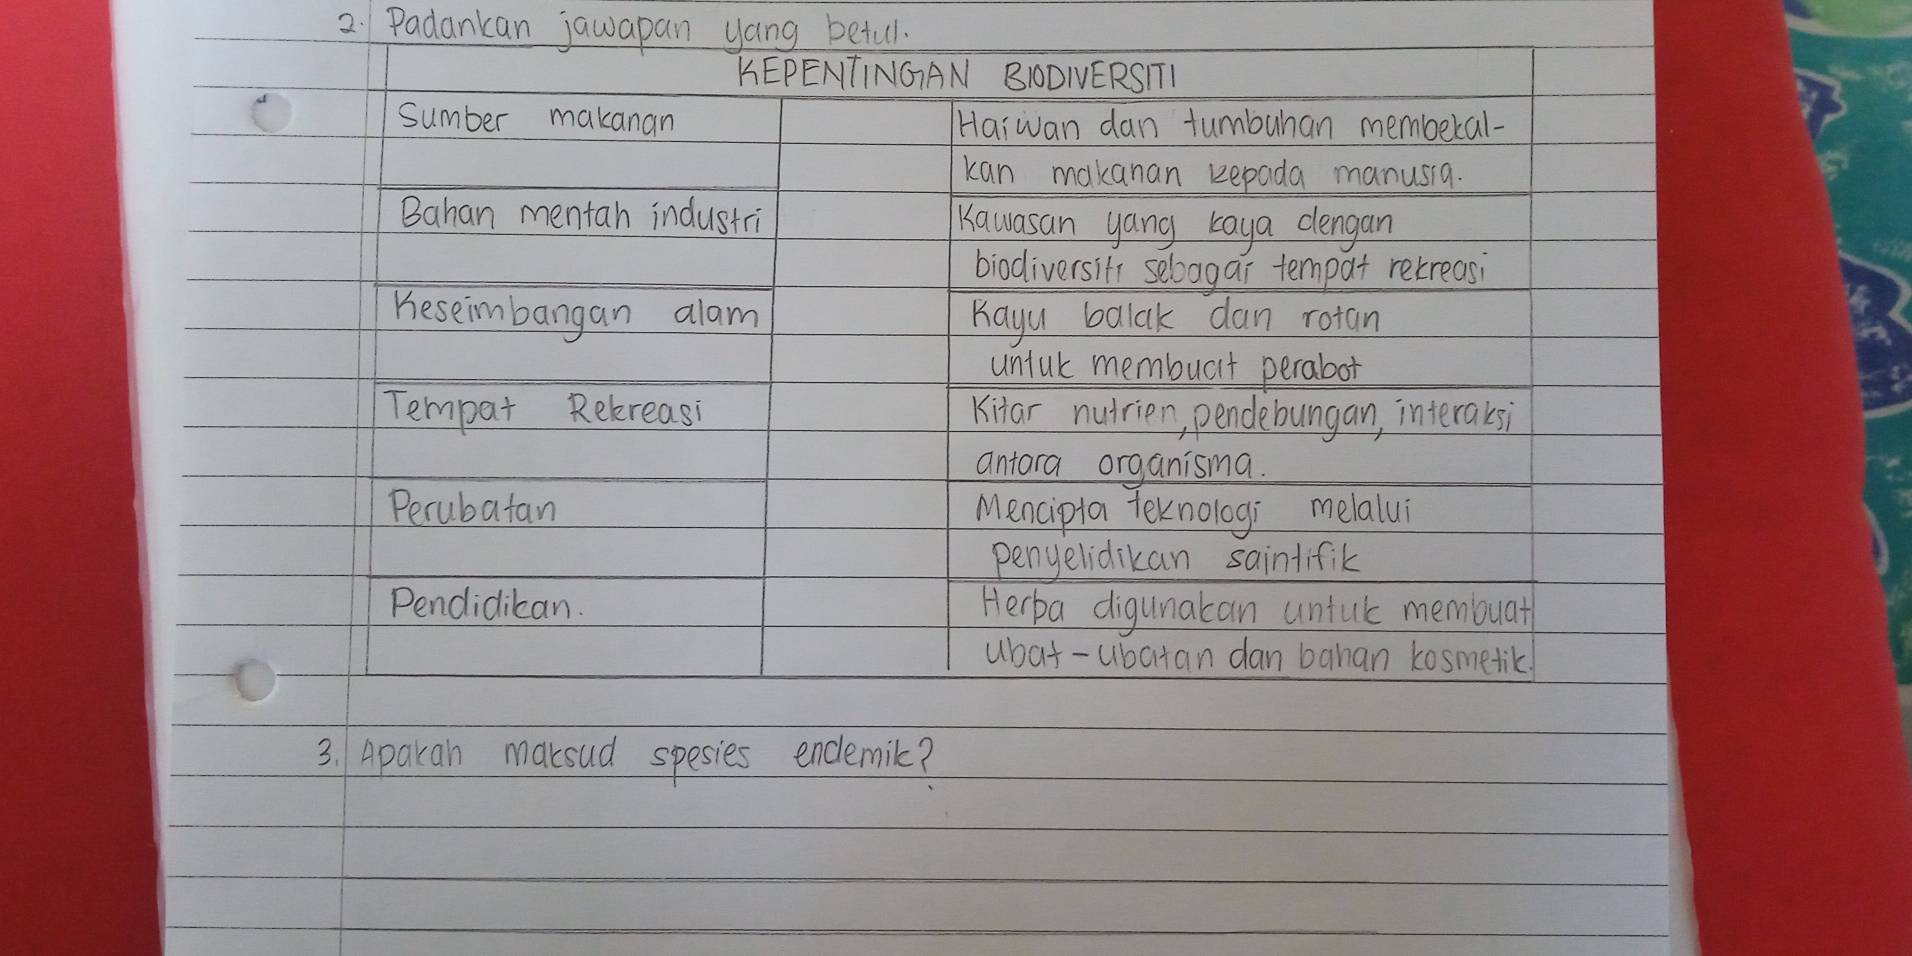 2. Padankan jawapan yang betul.
KEPENTINGAN BIODIVERSITI
Sumber makanan
Haiwan dan tumbuhan membekal-
kan makanan kepada manusia.
Bahan mentah industri
Kawasan yang kaya dengan
biodiversiti sebagai tempat rekreasi
Keseimbangan alam
Kayu balak dan rotan
untuk membuat perabot
Tempat Rekreasi
Kitar nutrien, pendebungan, interaksi
antara organisma.
Perubatan
Mencipta teknologi melalui
penyelidikan saintifik
Pendidikan.
Herba digunakan untuk membuat
ubat-ubatan dan bahan kosmetik.
3. Apakah maksud spesies endemik?